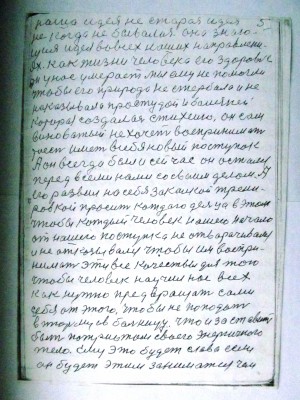 5
наша идея не старая идея
не когда не бывалая она эволо-
ция идея во всех наших направлени-
ях. как жизни человека его здоровье
он у нас умерает мы ему не помогли
чтобы его природа не стербала и не
наказывала простудой и болезнею
которая создалась стихию, он сам
виноватый не хочет воспринимать
имет в себя новый поступок
А он всегда был и сей час он остался
перед всеми нами со своим делом. Я
его развил на себя закалкой трени-
ровкой просит каждого дельца в этом
чтобы каждый человек нашего начала
от нашего поступка не отварачивался
и не отказывался чтобы им воспри-
нимат эти все качества для того
чтобы человек научил нас всех
как нужно предвращат сами
себя от этого, чтобы не попадат
в тюрму и в балницу. что и заставит
быть патриотом своего энергичного
тела. ему это будет слава если
он будет этим заниматся чем